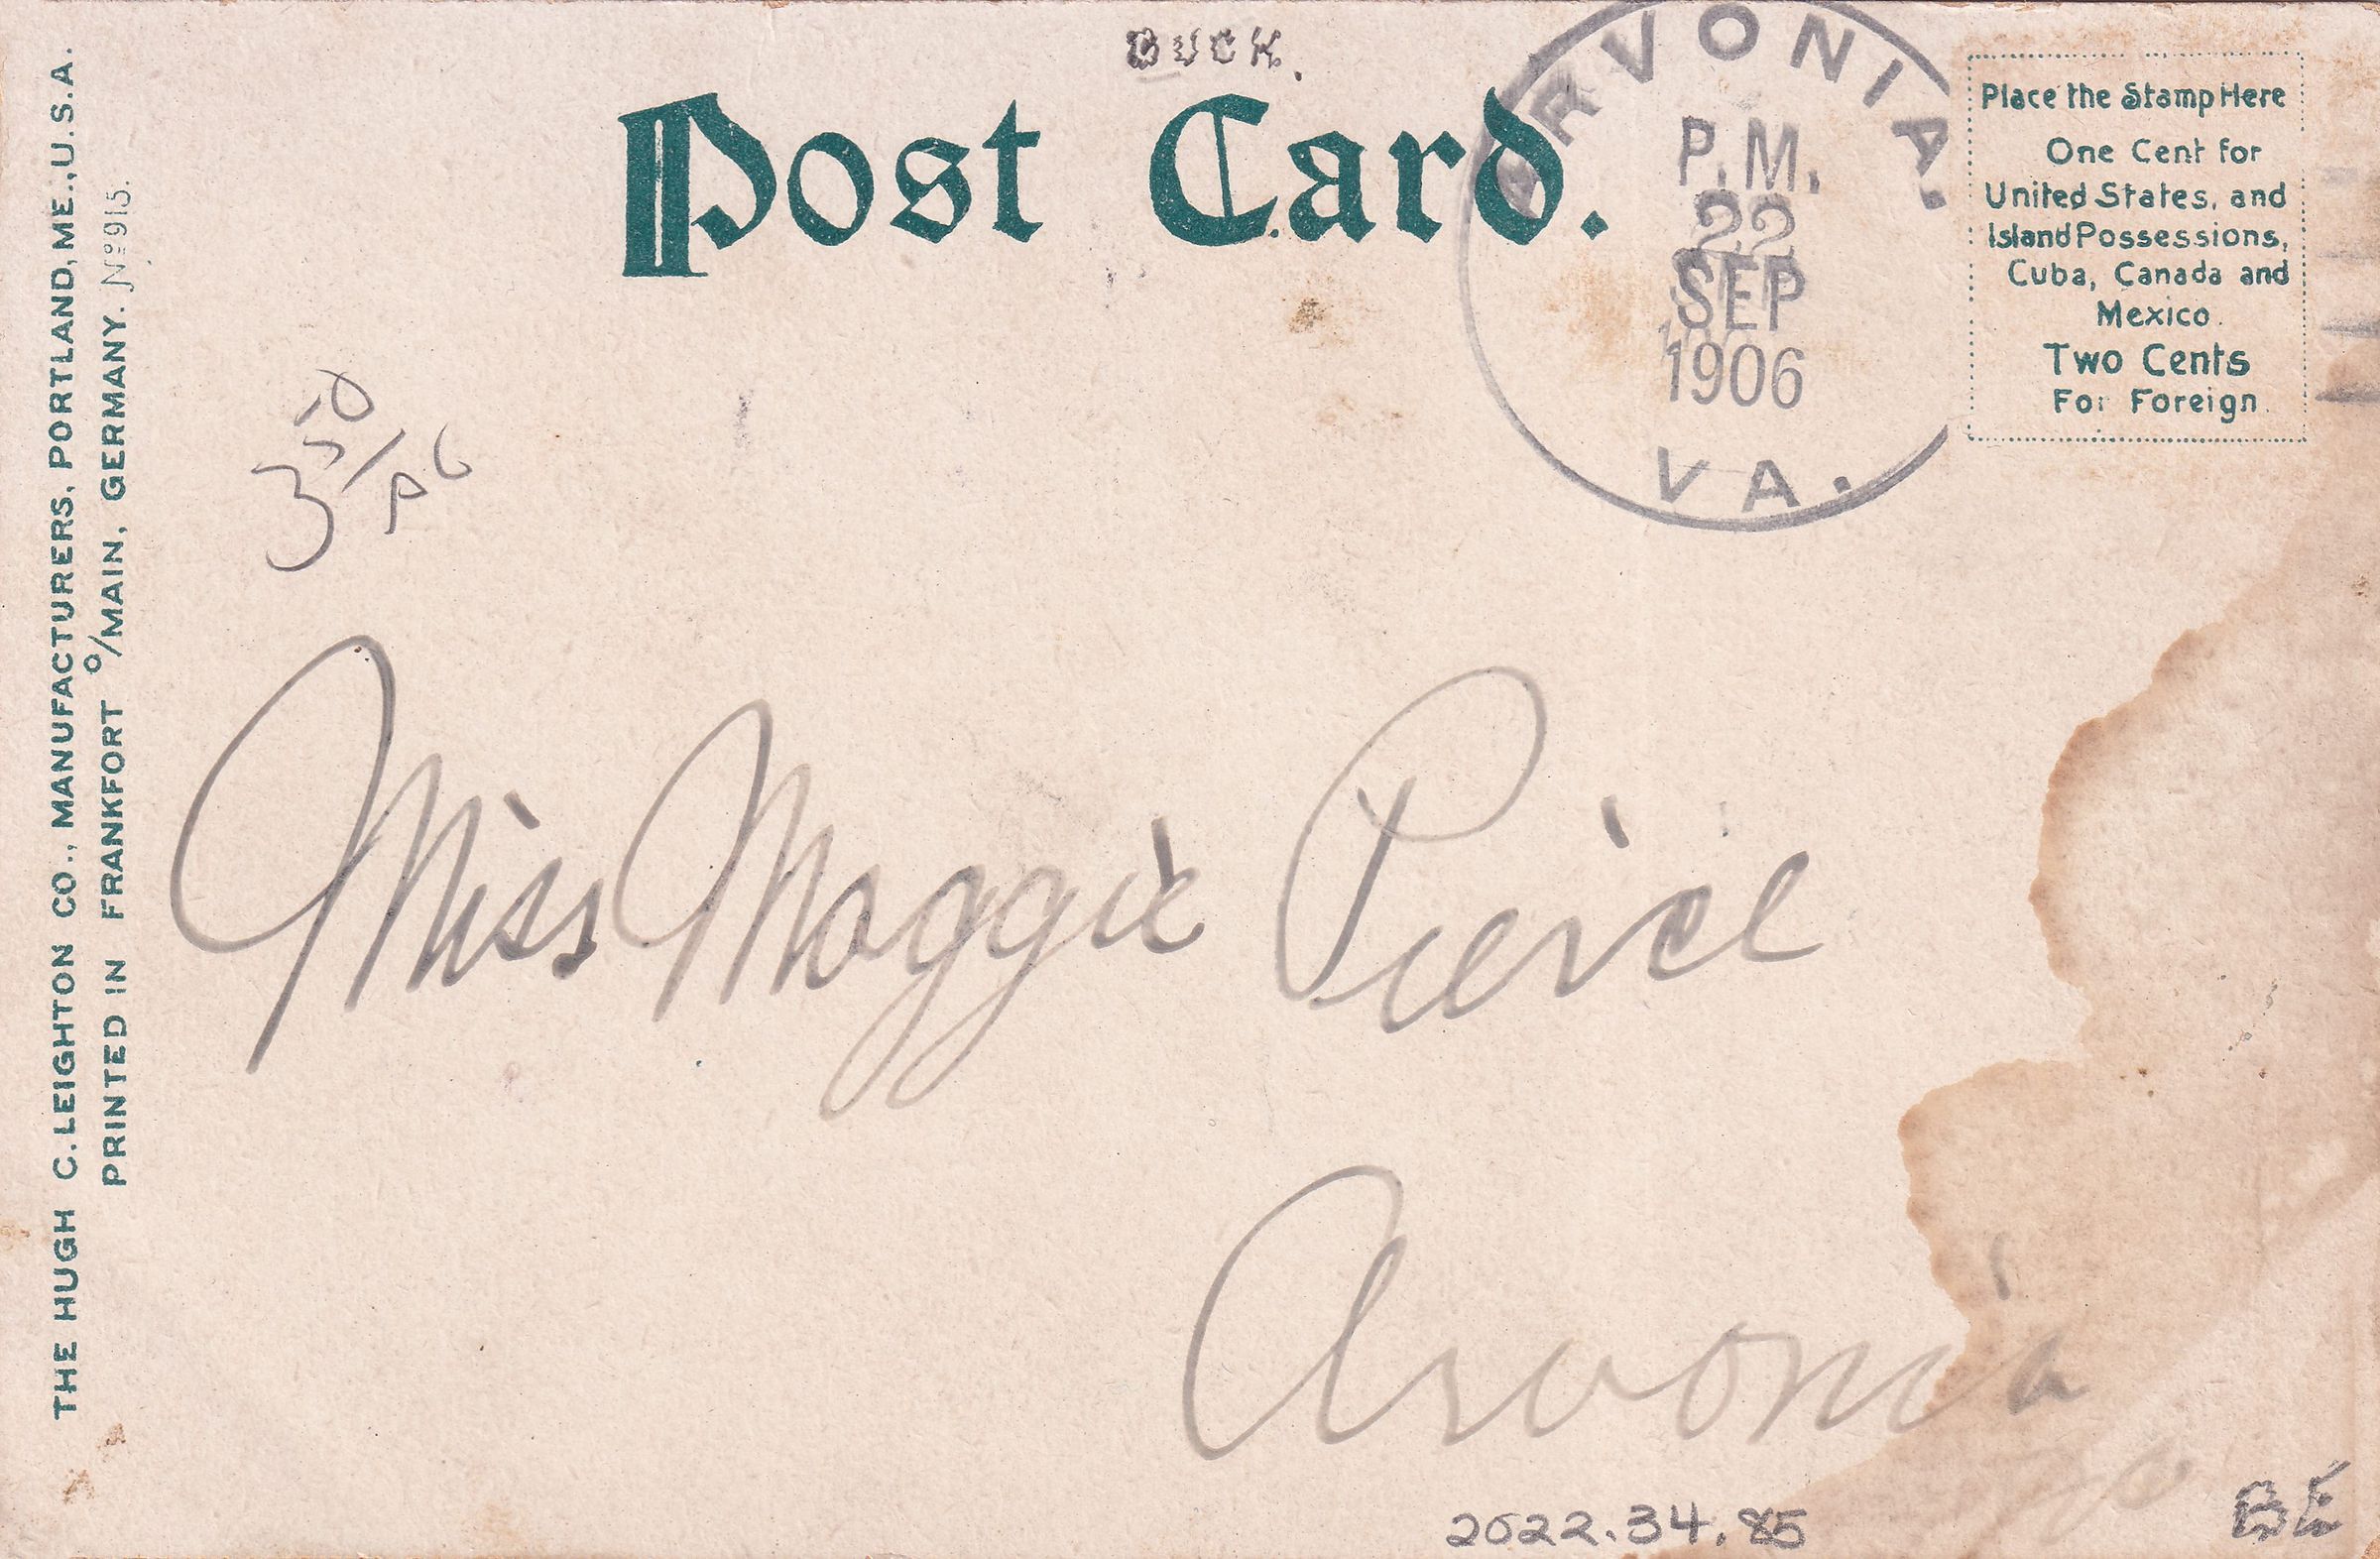 BUCK.
Post Card.
ARVONIA.
P.M.
22
SEP
1906
VA.
Place the Stamp Here
One Cent for
United States, and
Island Possessions,
Cuba, Canada and
Mexico.
Two Cents
For Foreign.
THE HUGH C. LEIGHTON CO., MANUFACTURERS, PORTLAND, ME., U.S.A.
PRINTED IN FRANKFORT O/MAIN, GERMANY. No 915.
Miss Maggie Pierce
Arvonia
2022.34.85
BE